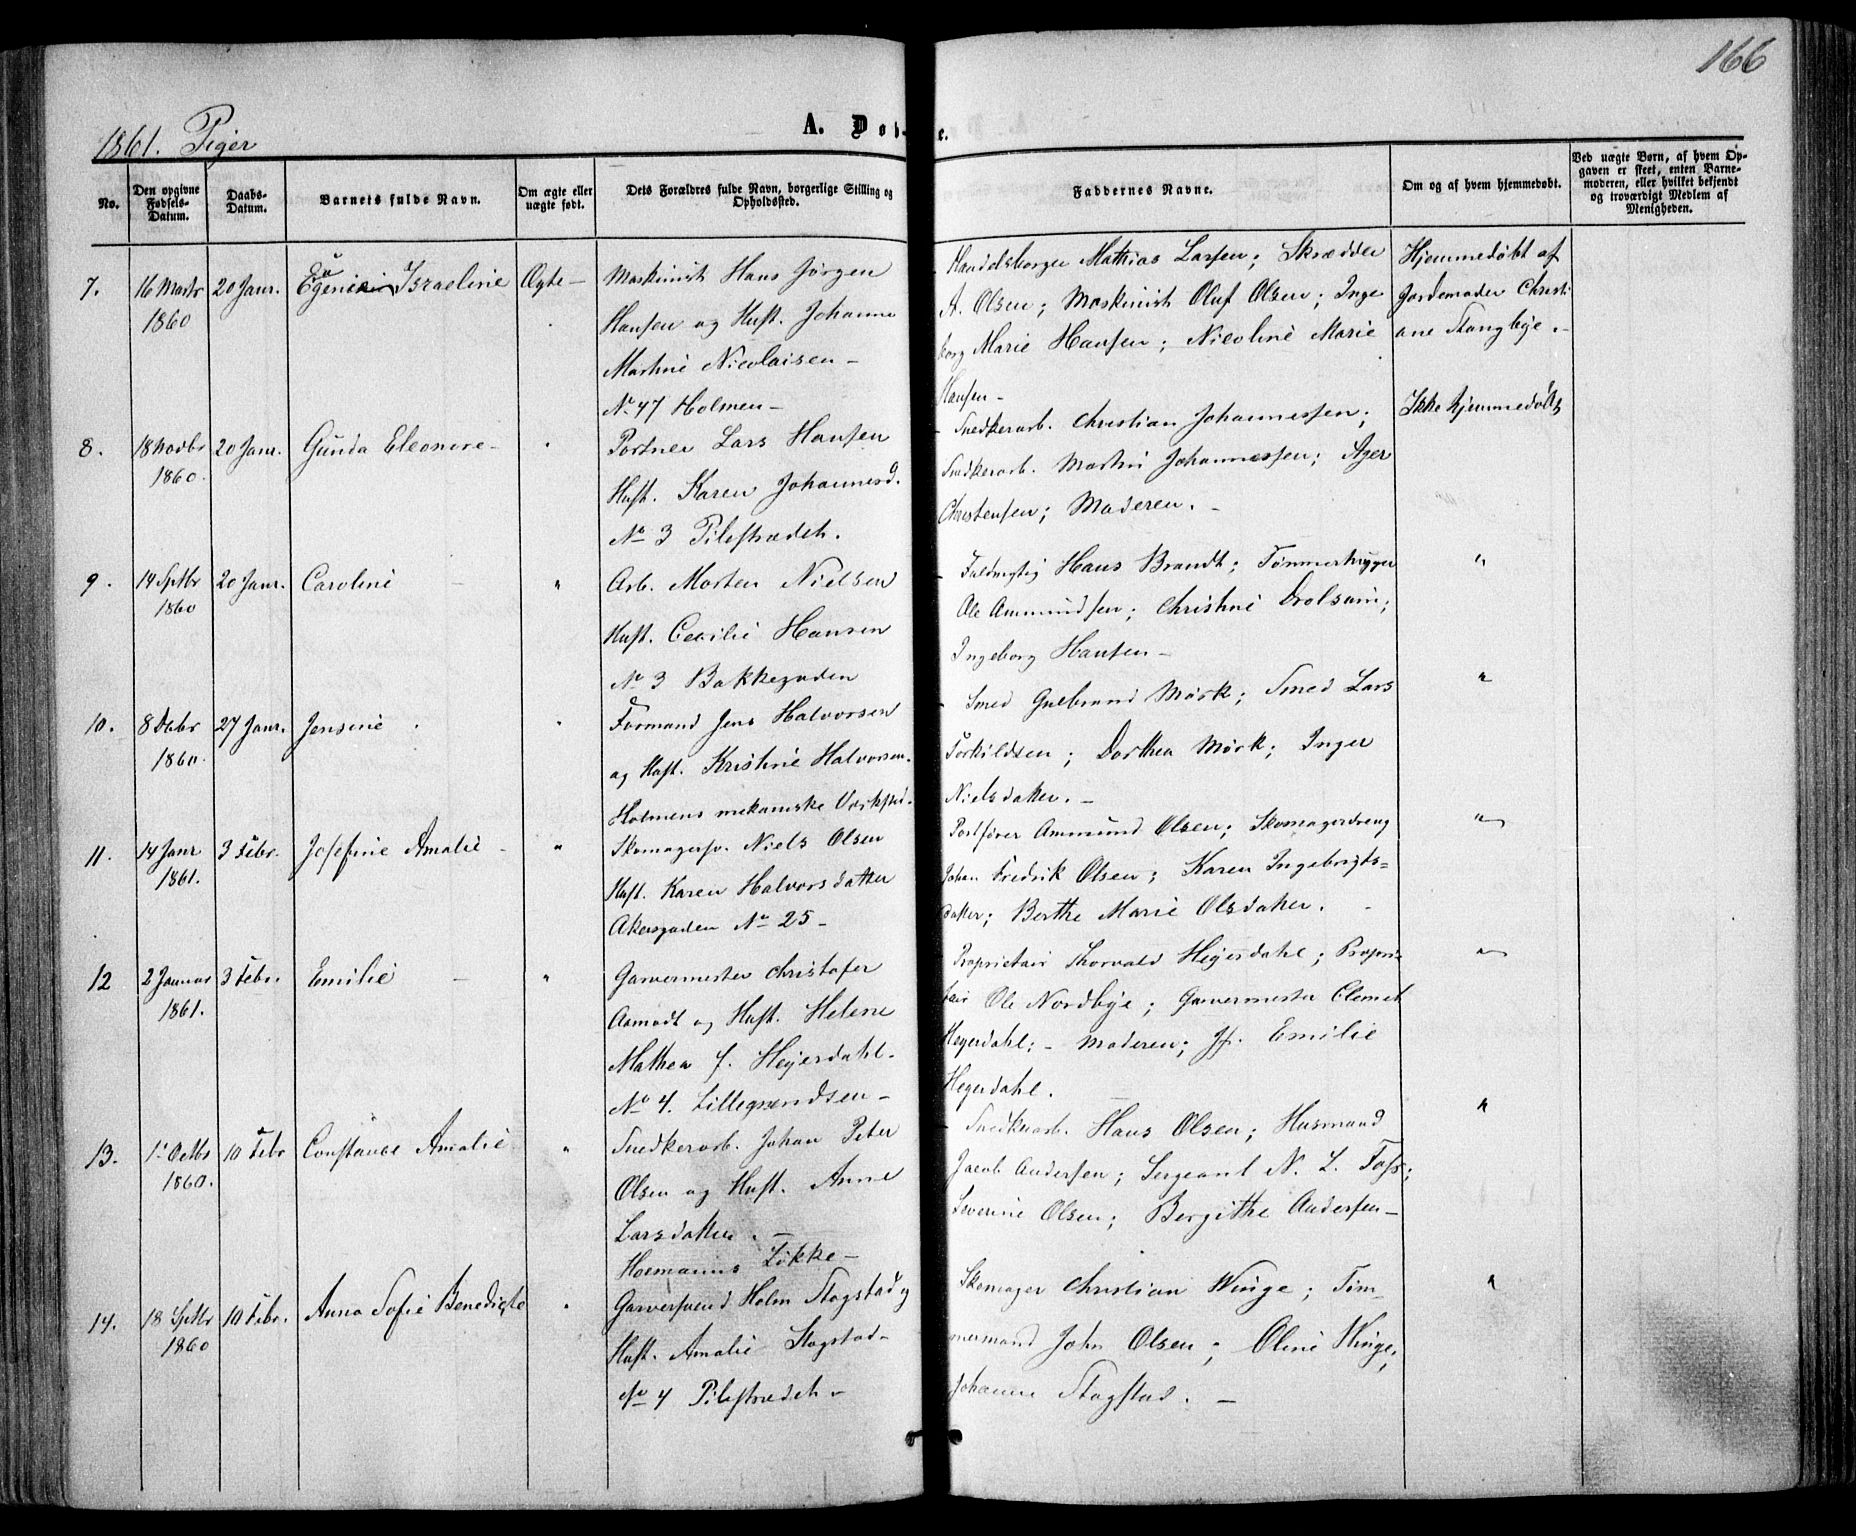 166
1861. Piger
A. Døb-
e.
No.
Den opgivne Fødsels-Datum.
Daabs-Datum.
Barnets fulde Navn.
Om ægte eller uægte født.
Dets Forældres fulde Navn, borgerlige Stilling og Opholdssted.
Faddernes Navne.
Om og af hvem hjemmedøbt.
Ved uægte Børn, af hvem Opgaven er skeet, enten Barnemoderen, eller hvilket bekjendt og troværdigt Medlem af Menigheden.
7. 16 1860 20 Janr. Israeline Ægte
Maskinist Hans Jørgen
Hansen og Hust. Johanne
Martine Nicolaisen
No 47 Holmen
Handelsborger Mathias Larsen; Skrædder
A. Olsen; Maskinist Oluf Olsen; Inge
borg Marie Hansen; Nicoline Marie
Hansen
Hjemmedøbt af
Jordemoder Christi
ane Stangbye.
8. 18 Novbr 1860. 20 Janr. Gunda Eleonore "
Portner Lars Hansen
Hust. Karen Johannesd.
No 3 Pilestrædet.
Snedkerarb. Christian Johannessen;
Snedkerarb. Martin Johannessen; Ager
Christensen; Moderen.
Ikke hjemmedøbt
9. 14 Septbr 1860 20 Janr. Caroline "
Arb. Morten Nielsen
Hust. Cecilie Hansen
No 3 Bakkegaden
Fuldmægtig Hans Brandt; Tømmerhugger
Ole Ammundsen; Christine Drolsum;
Ingeborg Hansen
"
10. 8 Decbr 1860. 27 Janr. Jensine "
Formand Jens Halvorsen
og Hust. Kristine Halvorsen.
Holmens mekaniske Værksted.
Smed Gulbrand Mørk; Smed Lars
Torkildsen; Dorthea Mørk; Inger
Nielsdatter.
"
11. 14 Janr 1861. 3 Febr. Josefine Amalie "
Skomagersv. Niels Olsen
Hust. Karen Halvorsdatter
Akersgaden No 25
Portfører Ammund Olsen; Skomagerdreng
Johan Fredrik Olsen; Karen Ingebrigts-
datter; Berthe Marie Olsdatter.
"
12 2 Januar 1861. 3 Febr. Emilie "
Garvermester Christofer
Aamodt og Hust. Helene
Mathea f. Hejerdahl.
No 4. Lillegrændsen
Proprietair Thorvald Hejerdahl; Propri-
tair Ole Nordbye; Garvermester Clemet
Hegerdahl; Moderen; Jf. Emilie
Hegerdahl.
"
13. 1. Octbr 1860. 10 Febr Constance Amalie "
Snedkerarb. Johan Peter
Olsen og Hust. Anne
Larsdatter.
Hermanns Løkke
Snedkerarb. Hans Olsen; Husmand
Jacob Andersen; Sergeant N. L. Foss;
Severine Olsen; Bergithe Andersen
"
14. 18 Septbr 1860 10 Febr. Anna Sofie Benedigte "
Garversvend Holm Stagstad og
Hust. Amalie Stagstad
No 4 Pilestrædet
Skomager Christian Winge; Tim-
mermand John Olsen; Oline Winge;
Johanne Stagstad.
"